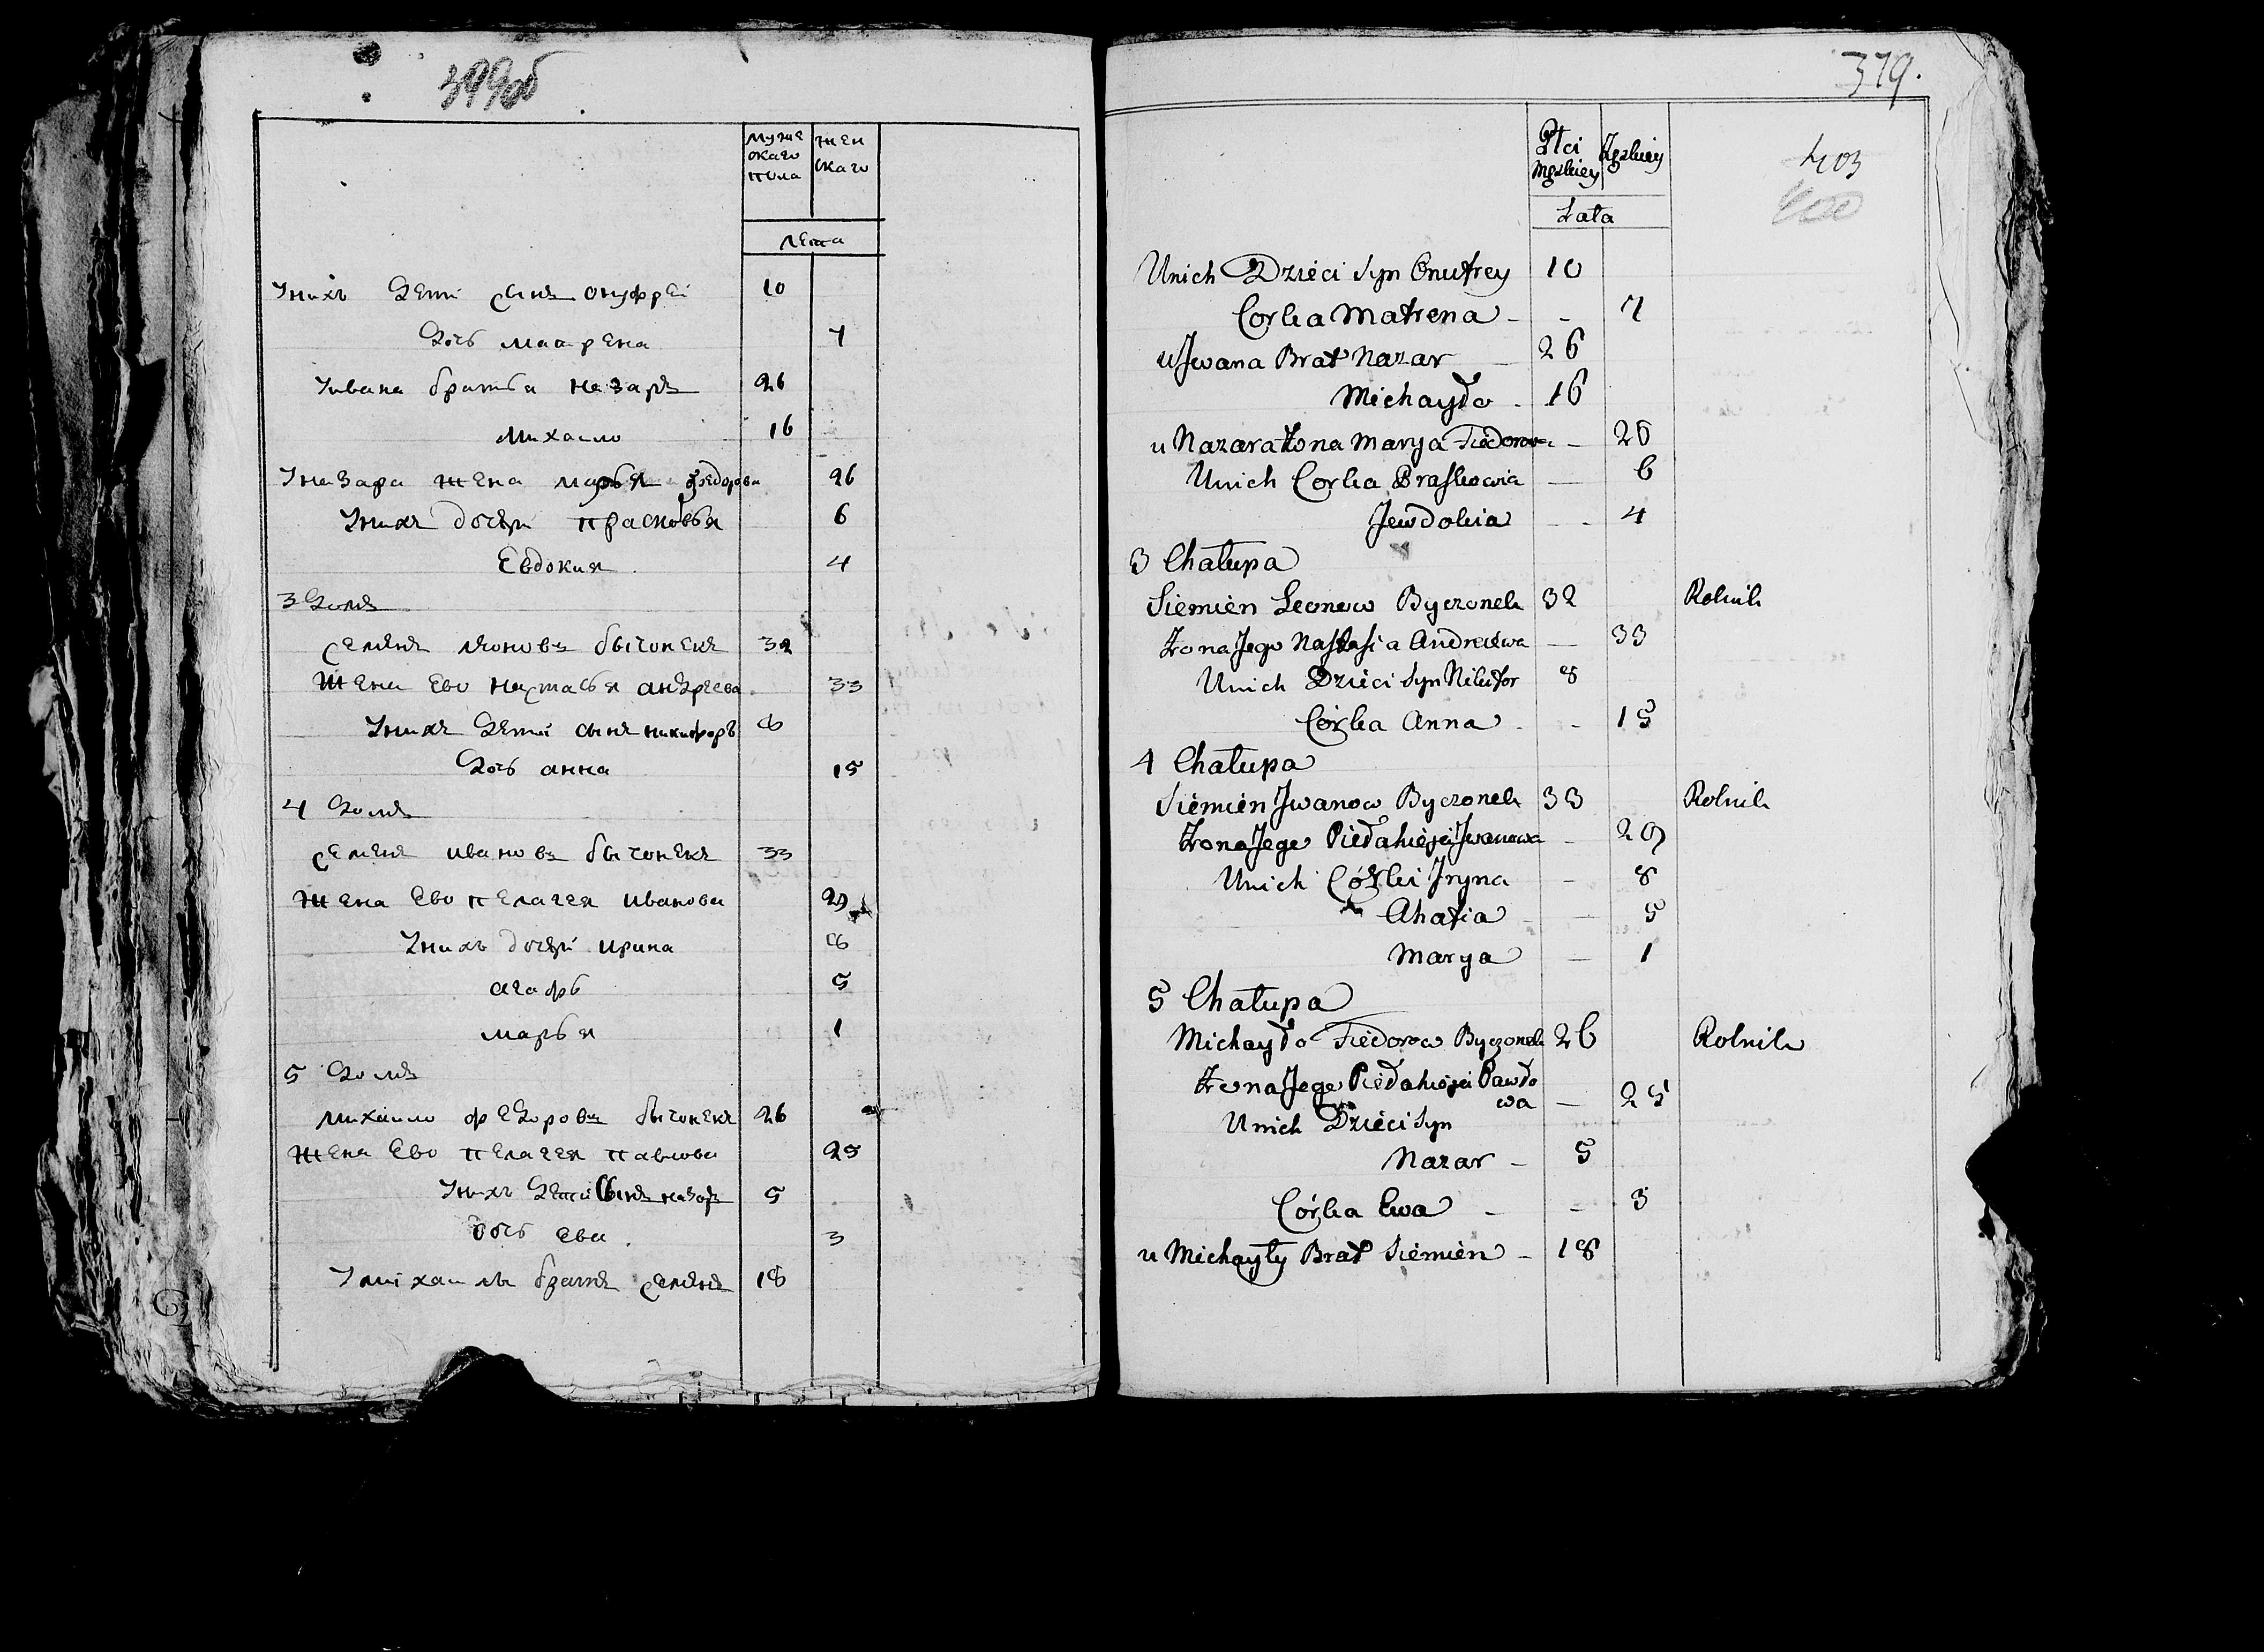 муже
скаго
пола
жен
скаго
лета
Унихъ Дети сынъ онуфреі 10
Дочь матрена 7
Уивана братья назаръ 26
михаило 16
Уназара жена марья федорова 26
Унихъ дочери прасковья 6
Евдокия 4
3 Домъ
семенъ леоновъ бычонекъ 32
жена Ево настасья андреева 33
Унихъ Дети сынъ никифоръ 8
Дочь анна 15
4 Домъ
семенъ ивановъ бычонекъ 33
жена Ево пелагея иванова 29
Унихъ дочери ирина 8
агафь 5
марья 1
5 Домъ
михаило федоровъ бычонекъ 26
жена Ево пелагея павлова 25
Унихъ Дети Сынъ назаръ 5
дочь ева 3
Уміхаилы братъ семенъ 18
379.
Płci
Męzkiey
Żęzkiey
403
400
Lata
Unich Dzieci Syn Onufrey 10
Corka Matrena - - 7
u Jwana Brat Nazar 26
Michayło - 16
u Nazara Żona Marya Fiedorowa - 26
Unich Corka Praskowia - 6
Jewdokia - - 4
3 Chałupa
Siemien Leonow Byczonek 32 Rolnik
Żona Jego Nastasia Andreiewa - 33
Unich Dzieci Syn Nikifor 8
Córka Anna - - 15
4 Chałupa
Siemien Jwanow Byczonek 33 Rolnik
Żona Jego Pielahieja Jwanowa - 29
Unich Córki Jryna - 8
Ahafia - - 5
Marya - 1
5 Chałupa
Michayło Fiedorow Byczonek 26 Rolnik
Żona Jego Pielahieja Pawło
wa - 25
Unich Dzieci Syn
Nazar - 5
Córka Ewa - - 3
u Michayły Brat Siemien - 18